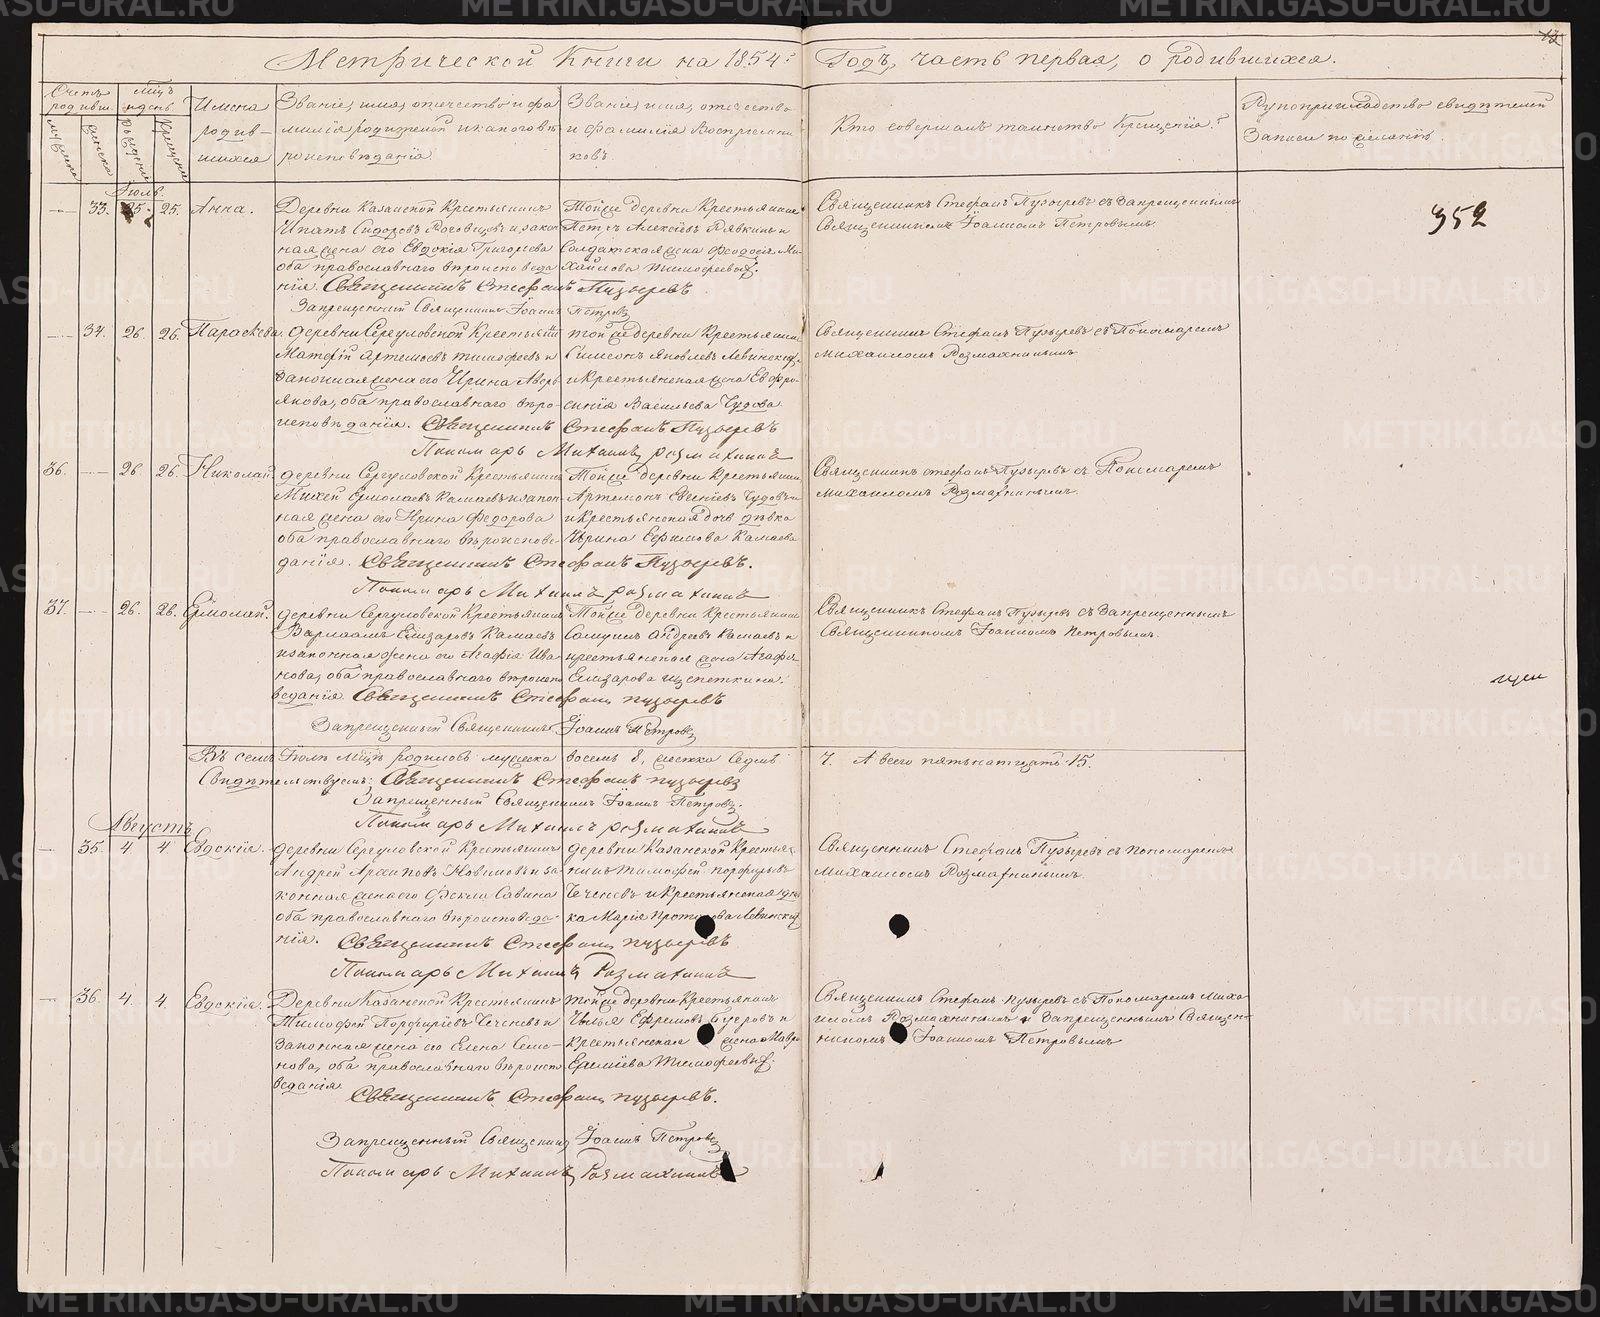 METRIKI.GASO-URAL.RU
Метрической Книги на 1854й Годъ, часть первая, о родившихся.
13
Счетъ родивш. Мцъ и день Имена родившихся
Званіе, имя, отчество и фамилія родителей и какого вѣроисповѣданія.
Званіе, имя, отчество и фамилія Воспріемниковъ.
Кто совершалъ таинство Крещенія?
Рукоприкладство свидѣтелей Записи по желанію.
мужеска женска рожденія крещенія
Іюль
33. 25. 25. Анна.
Деревни Казанской Крестьянинъ
Ипатъ Сидоровъ и закон-
ная жена его Евдокія Григорьева
оба православнаго вѣроисповѣда-
нія. Священникъ Стефанъ Пузыревъ
Запрещенный Священникъ Іоаннъ Петровъ
Тойже деревни Крестьянинъ
Петръ Алексѣевъ и
Солдатская жена Феодосія Ми-
хайлова Тимофеевыхъ.
Священникъ Стефанъ Пузыревъ съ Запрещеннымъ
Священникомъ Іоанномъ Петровымъ.
352
34. 26. 26. Параскева.
деревни Сергуловской Крестьянинъ
Матфій Артемьевъ Тимофеевъ и
Законная жена его Ирина Аверь-
янова, оба православнаго вѣро-
исповѣданія. Священникъ Стефанъ Пузыревъ
Пономарь Михаилъ Розмахнинъ
тойже деревни Крестьянинъ
Симеонъ Яковлевъ Левинскій,
и Крестьянская жена Евфро-
синія Васильева Чудова.
Священникъ Стефанъ Пузыревъ съ Пономаремъ
Михаиломъ Розмахнинымъ
36. 26 26. Николай.
деревни Сергуловской Крестьянинъ
Михей Ермолаевъ Камаевъ и закон-
ная жена его Ирина Федорова
оба православнаго вѣроисповѣ-
данія. Священникъ Стефанъ Пузыревъ.
Пономарь Михаилъ Розмахнинъ
Тойже деревни Крестьянинъ
Артемонъ Евгеніевъ Чудовъ и
и Крестьянская дочь дѣвка
Ирина Ефимова Камаева
Священникъ Стефанъ Пузыревъ съ Пономаремъ
Михаиломъ Розмахнинымъ.
37. 26. 26. Ермолай.
деревни Сергуловской Крестьянинъ
Варлаамъ Елизаровъ Камаевъ
и законная жена его Агафія Ива-
нова, оба православнаго вѣроиспо-
веданія. Священникъ Стефанъ Пузыревъ
Запрещенный Священникъ Іоаннъ Петровъ
Тойже деревни Крестьянинъ
Самуилъ Андреевъ Камаевъ и
крестьянская жена Агафія
Елизарова Щепеткина.
Священникъ Стефанъ Пузыревъ съ Запрещеннымъ
Священникомъ Іоанномъ Петровымъ.
Въ семъ Іюлѣ Мцѣ родилось мужеска восемь 8, женска Седмь 7. А всего пятьнатцать 15.
Свидѣтельствуемъ: Священникъ Стефанъ Пузыревъ
Запрещенный Священникъ Іоаннъ Петровъ.
Пономарь Михаилъ Розмахнинъ
Августъ
35. 4 4 Евдокія.
деревни Сергуловской Крестьянинъ
Андрей Архиповъ Новиковъ и за-
конная жена его Фекла Савина
оба православнаго вѣроисповѣда-
нія. Священникъ Стефанъ Пузыревъ
Пономарь Михаилъ Розмахнинъ
деревни Казанской Крестья-
нинъ Тимофей Порфирьевъ
Чеченевъ и Крестьянская дѣв-
ка Марія Левинская
Священникъ Стефанъ Пузыревъ съ Пономаремъ
Михаиломъ Розмахнинымъ.
36. 4. 4. Евдокія.
Деревни Казанской Крестьянинъ
Тимофей Порфиріевъ Чеченевъ и
Законная жена его Елена Семе-
нова, оба православнаго вѣроиспо-
веданія.
Священникъ Стефанъ Пузыревъ.
Запрещенный Священникъ Іоаннъ Петровъ
Пономарь Михаилъ Розмахнинъ
тойже деревни Крестьянинъ
Илья Ефремовъ и
Крестьянская жена Мавра
Тимофеевыхъ.
Священникъ Стефанъ Пузыревъ съ Пономаремъ Миха-
иломъ Розмахнинымъ и Запрещеннымъ Священ-
никомъ Іоанномъ Петровымъ